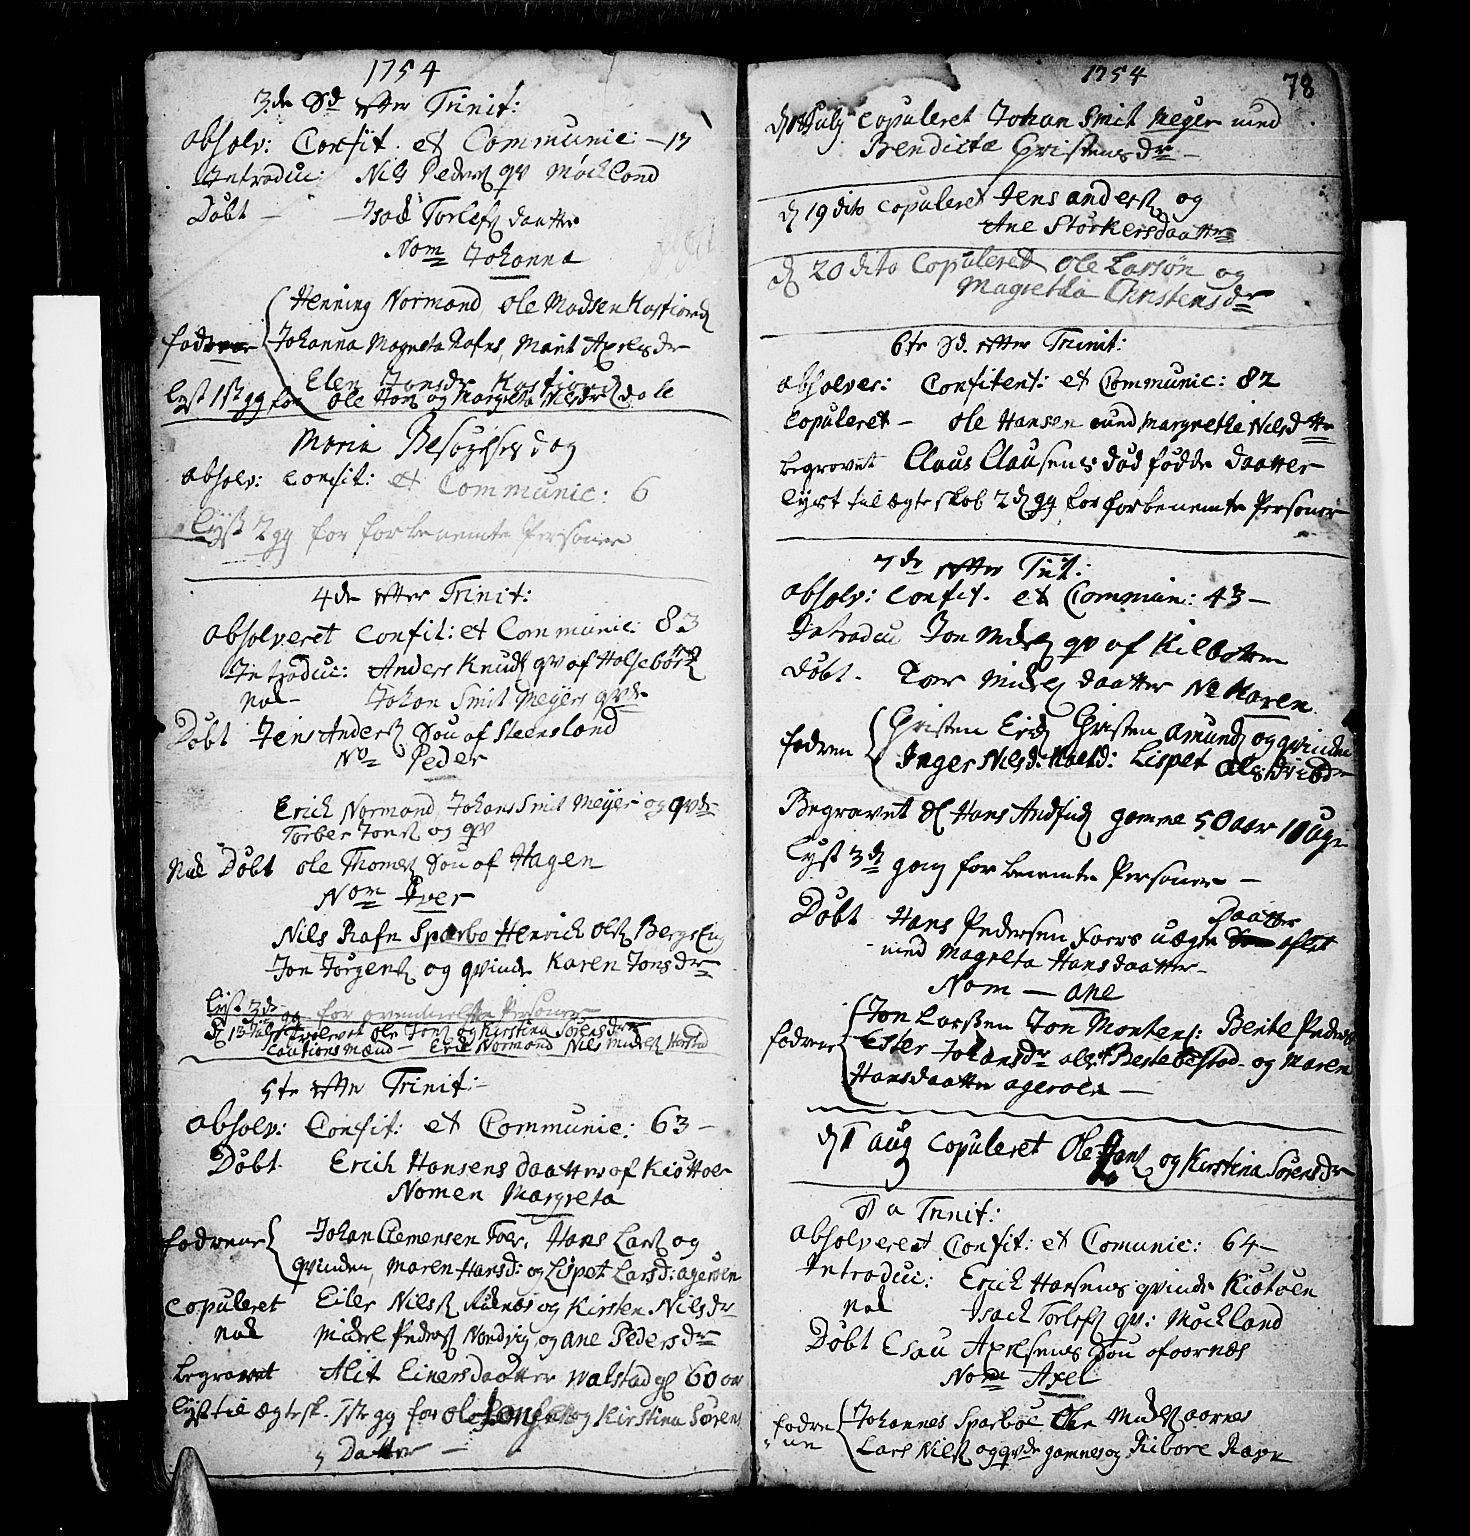 1754
3de Sd efter Trinit:
absolv: Confit. et Communic: — 13
Introduc: Nils Peders qv Möchland
Döbt — Isac Torlefs daatter
Nom Johanna
Henning Normand, Ole Madsen Kasfiord
fadrene Johanna Magreta Rafns, Marit Axelsdr
Elen Jonsdr Kasfiord
lyst 1ste gg for Ole Hans og Margreta Nilsdr
Mariæ Besögelses dag
absolv: Confit: et Communic: 6
lyst 2 gg for forbenemte Personer
4de efter Trinit:
absolveret Confit: et Communic: 83
Introduc: Anders Knuds qv af
nok — Johan Smit Meyers qvde
Döbt Jens Anders Sön af Steensland
No Peder
Erich Normand, Johan Smit Meyer og qvde
Torber Jons og qv
Nok Döbt Ole Thomes Sön af Hagen
Nom Iver
Nils Rafn Sparbo Henrich Ols
Jon Jörgens og qvinde Karen Jonsdr
lyst 3de gg for Personer —
d 13 Juli trolovet Ole Jons og Kirstina Sörensdr
Cautions Mænd — Erik Normand Nils Mickels
5te efter Trinit:
absolv: Confit: et Communic: 63 —
Döbt Erich Hansens daatter af
Nomen Margreta
fadrene Johan Clemensen Hans Lars og
qvinden, Maren Hansd: og Lispet Larsd:
Copuleret Eiler Nils og Kirsten Nilsdr
nok Mickel Peders og Ane Pedersdr
begravet Alit Einersdaatter walstad gl 60 aar
lyst til ægtesk. 1ste gg for Ole og Kirstina Sörens
Datter —
1754
78
Juli Copuleret Johan Smit Meyer med
Bendicta Christensdr —
d 19 dito Copuleret Jens anders og
Ane Storkersdaatter
d 20 dito Copuleret Ole Larsön og
Magretha Christensdr
6te Sd. efter Trinit:
absolver: Confitent: et Communic: 82
Copuleret — Ole Hansen med Margrethe Nilsdtr
begravet Claus Clausens död födde daatter
lyst til ægteskab 2d gg for forbenemte Personer
7de efter Trit:
absolv: Confit. et Commun: 43 —
Introduc Jon Mikels qv af Kilbotn
Döbt. Mickels daatter No Karen
fadren Christen Erichs Christen Amunds og qvinden
Inger Nilsd: Lispet
Begravet Hans gamme 50 aar 10 uger
lyst 3d gang for benemte Personer —
Döbt Hans Pedersen uægte Daatter aflet
med Magreta Hansdaatter —
Nom — Ane
fadrene Jon Larssen Jon Mortens: Berite Peders
Ester Johansdr og Maren
Hansdaatter ageroen —
d 1 aug Copuleret Ole Jons og Kirstina Sörensdr
8 a Trinit:
absolveret Confit: et Comunic: 64 —
Introduc: Erich Hansens qvinde
nok Isach Torlefs qv: Mochland
Döbt Esau Axelsens Sön
Nom Axel
fadrene Johannes Sparboe Mickels aarnes
Lars Nils og qvde gamnes og Riborre Rafn